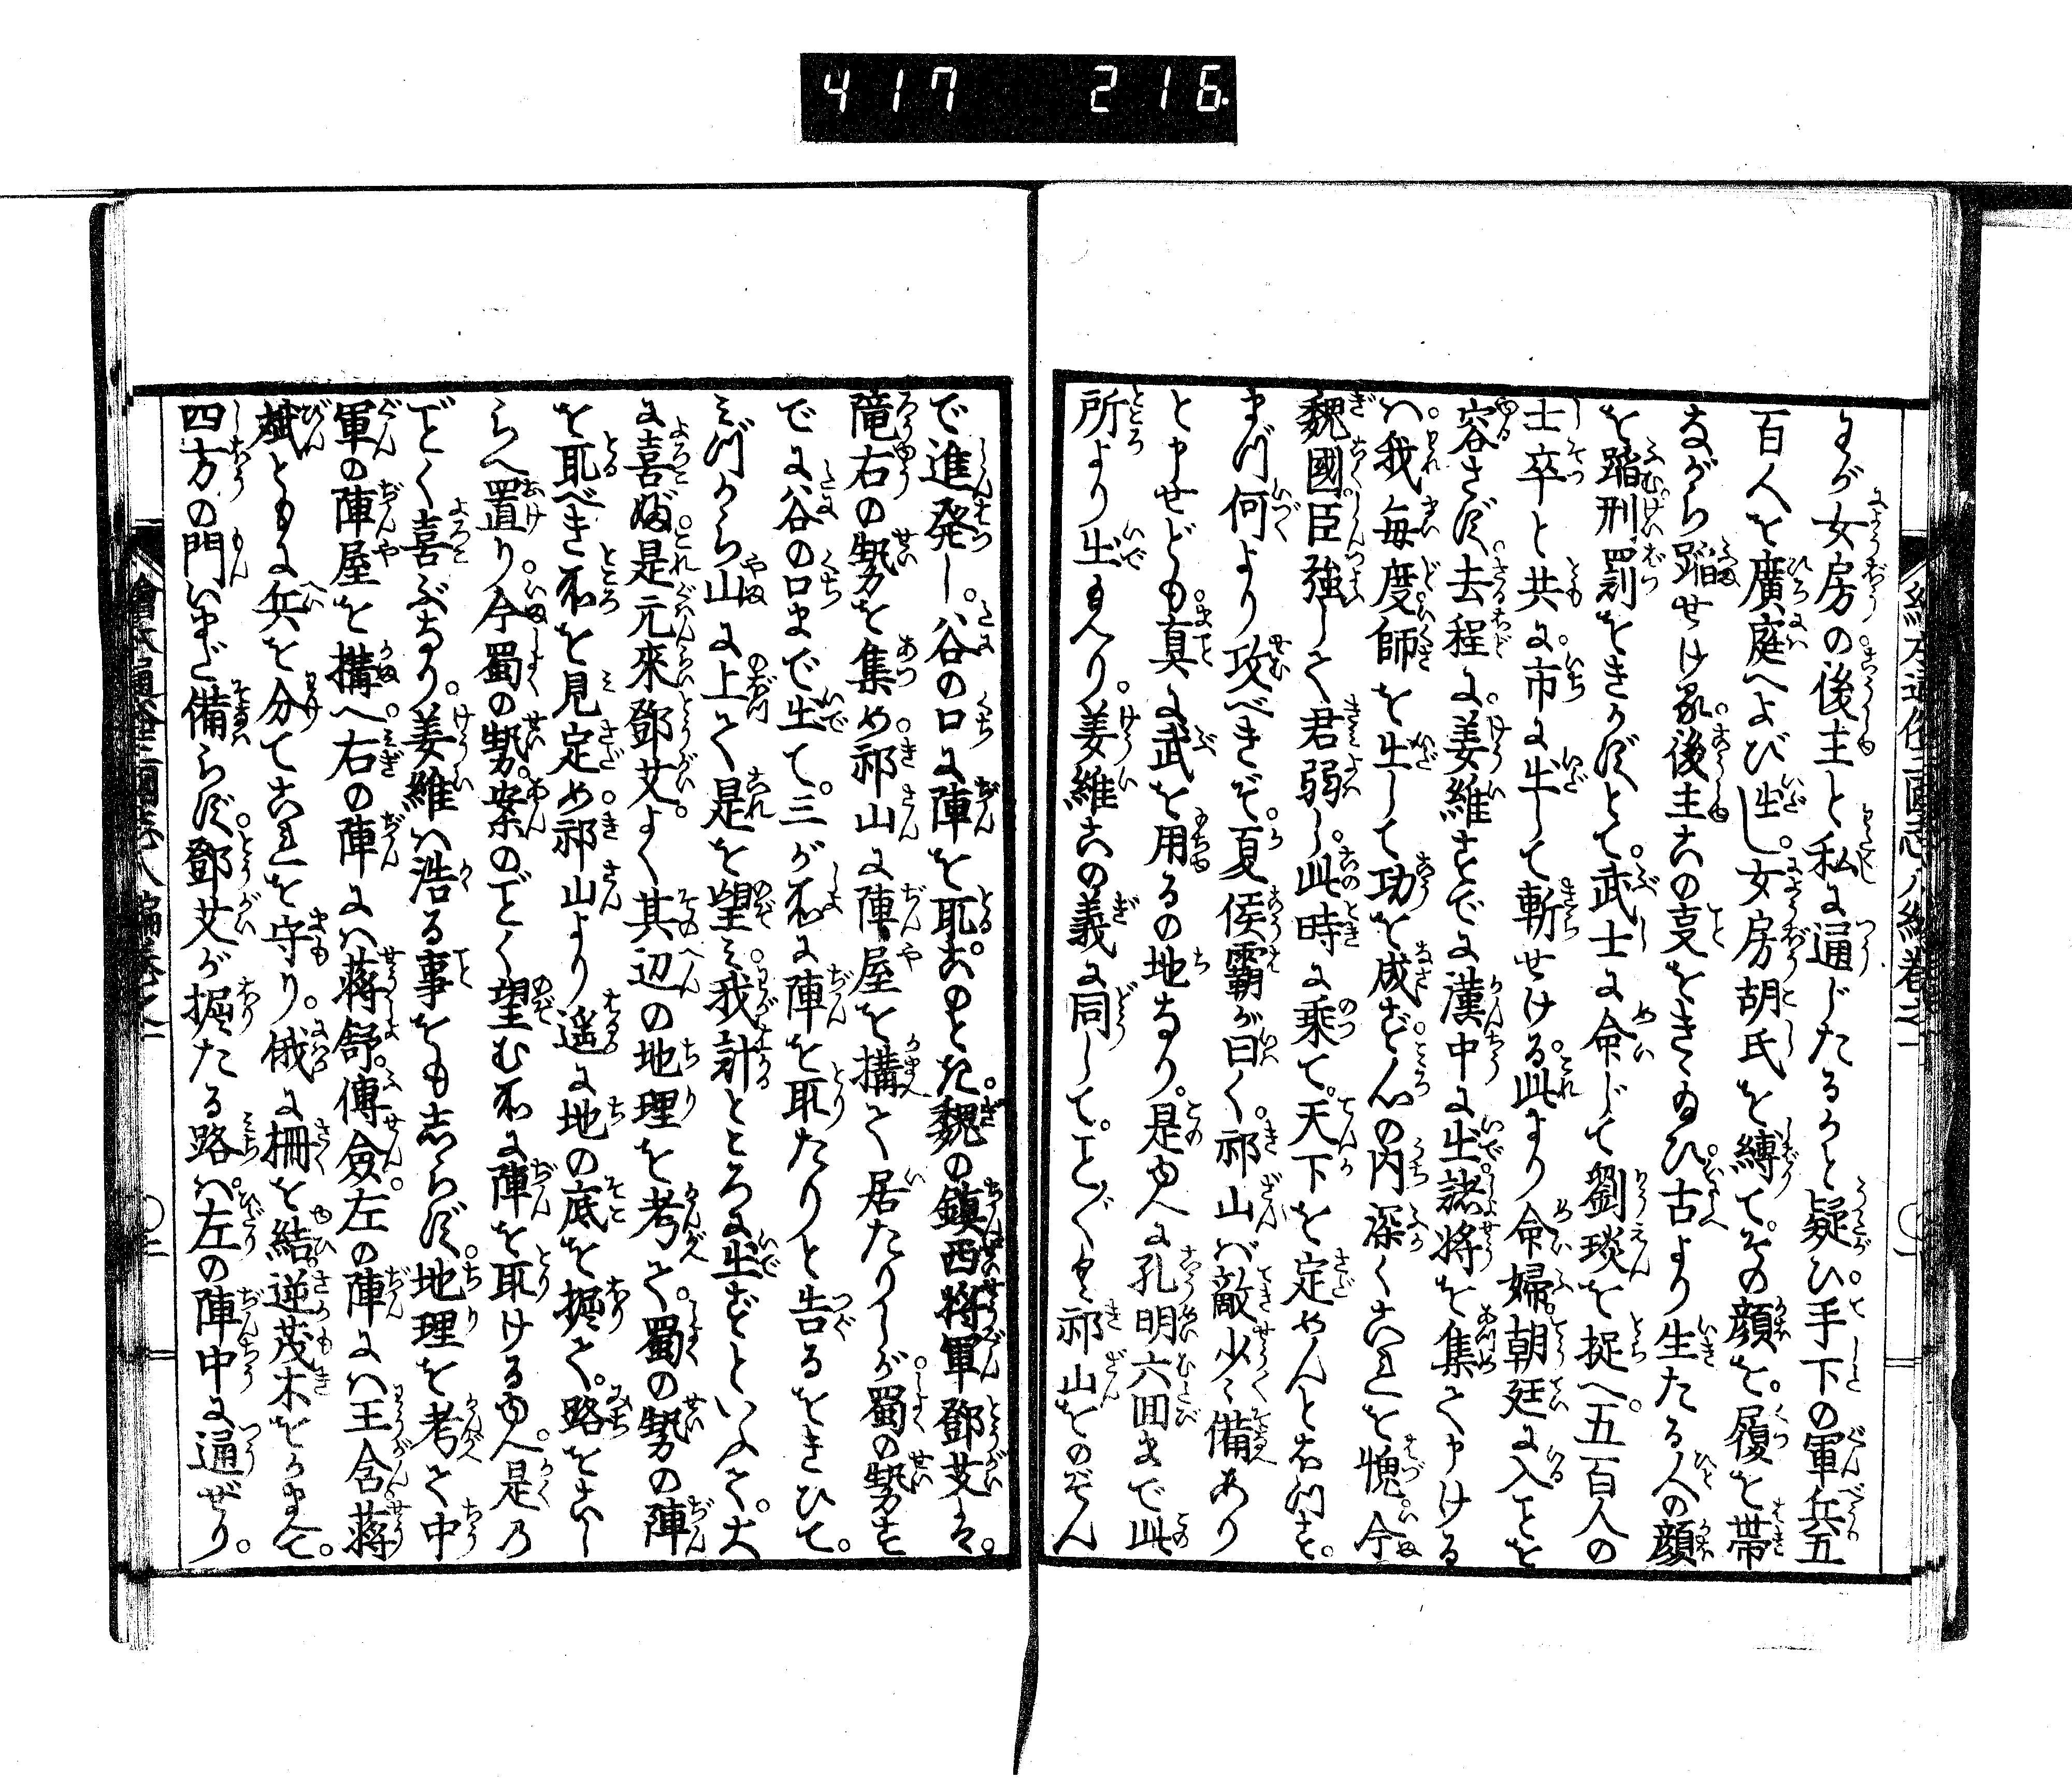 417 216
わが女房の後主と私に通じたるかと疑ひ。手下の軍兵五
百人を廣庭へよび出し。女房胡氏を縛て。その顔を。履を帯
ながら踏せける。後主この支をきゝ給ひ。古より生たる人の顔
を踏刑罰をきかずとて。武士に命じて劉琰を捉へ。五百人の
士卒と共に。市に出して斬せける。此より命婦。朝廷に入ことを
容さず。去程に。姜維すでに漢中に出。諸将を集て申ける
ハ。我毎度師を出して功を成ず。心の内深くこれを愧。今
魏國臣強して君弱し。此時に乗て。天下を定めんとおもす。
まづ何より攻べきぞ。夏侯霸が曰く。祁山ハ敵少〻備あり
と申せども。真に武を用るの地なり。是ゆへに孔明六回まで此
所より出たまへり。姜維この義に同して。こと〴〵く祁山をのぞん
で進発し。谷の口に陣を取。このとき。魏の鎮西将軍鄧艾は。
隴右の勢を集め。祁山に陣屋を構て居たりしが。蜀の勢す
でに谷の口まで出て。三が所に陣を取たりと告るをきひて。
みづから山に上て是を望み。我計ところに出ずといふて。大
に喜ぶ。是元來鄧艾。よく其辺の地理を考て。蜀の勢の陣
を取べき所を見定め。祁山より遥に地の底を掘て。路をこし
らへ置り。今蜀の勢。案のごとく望む所に陣を取けるゆへ。是乃
ごとく喜ぶなり。姜維ハ浩る事をも志らず。地理を考て中
軍の陣屋を構へ。右の陣にハ蒋舒。傅僉。左の陣にハ王含。蒋
斌ともに兵を分てこれを守り。俄に柵を結。逆茂木をかまへて。
四方の門いまだ備らず。鄧艾が掘たる路ハ。左の陣中に通ぜり。